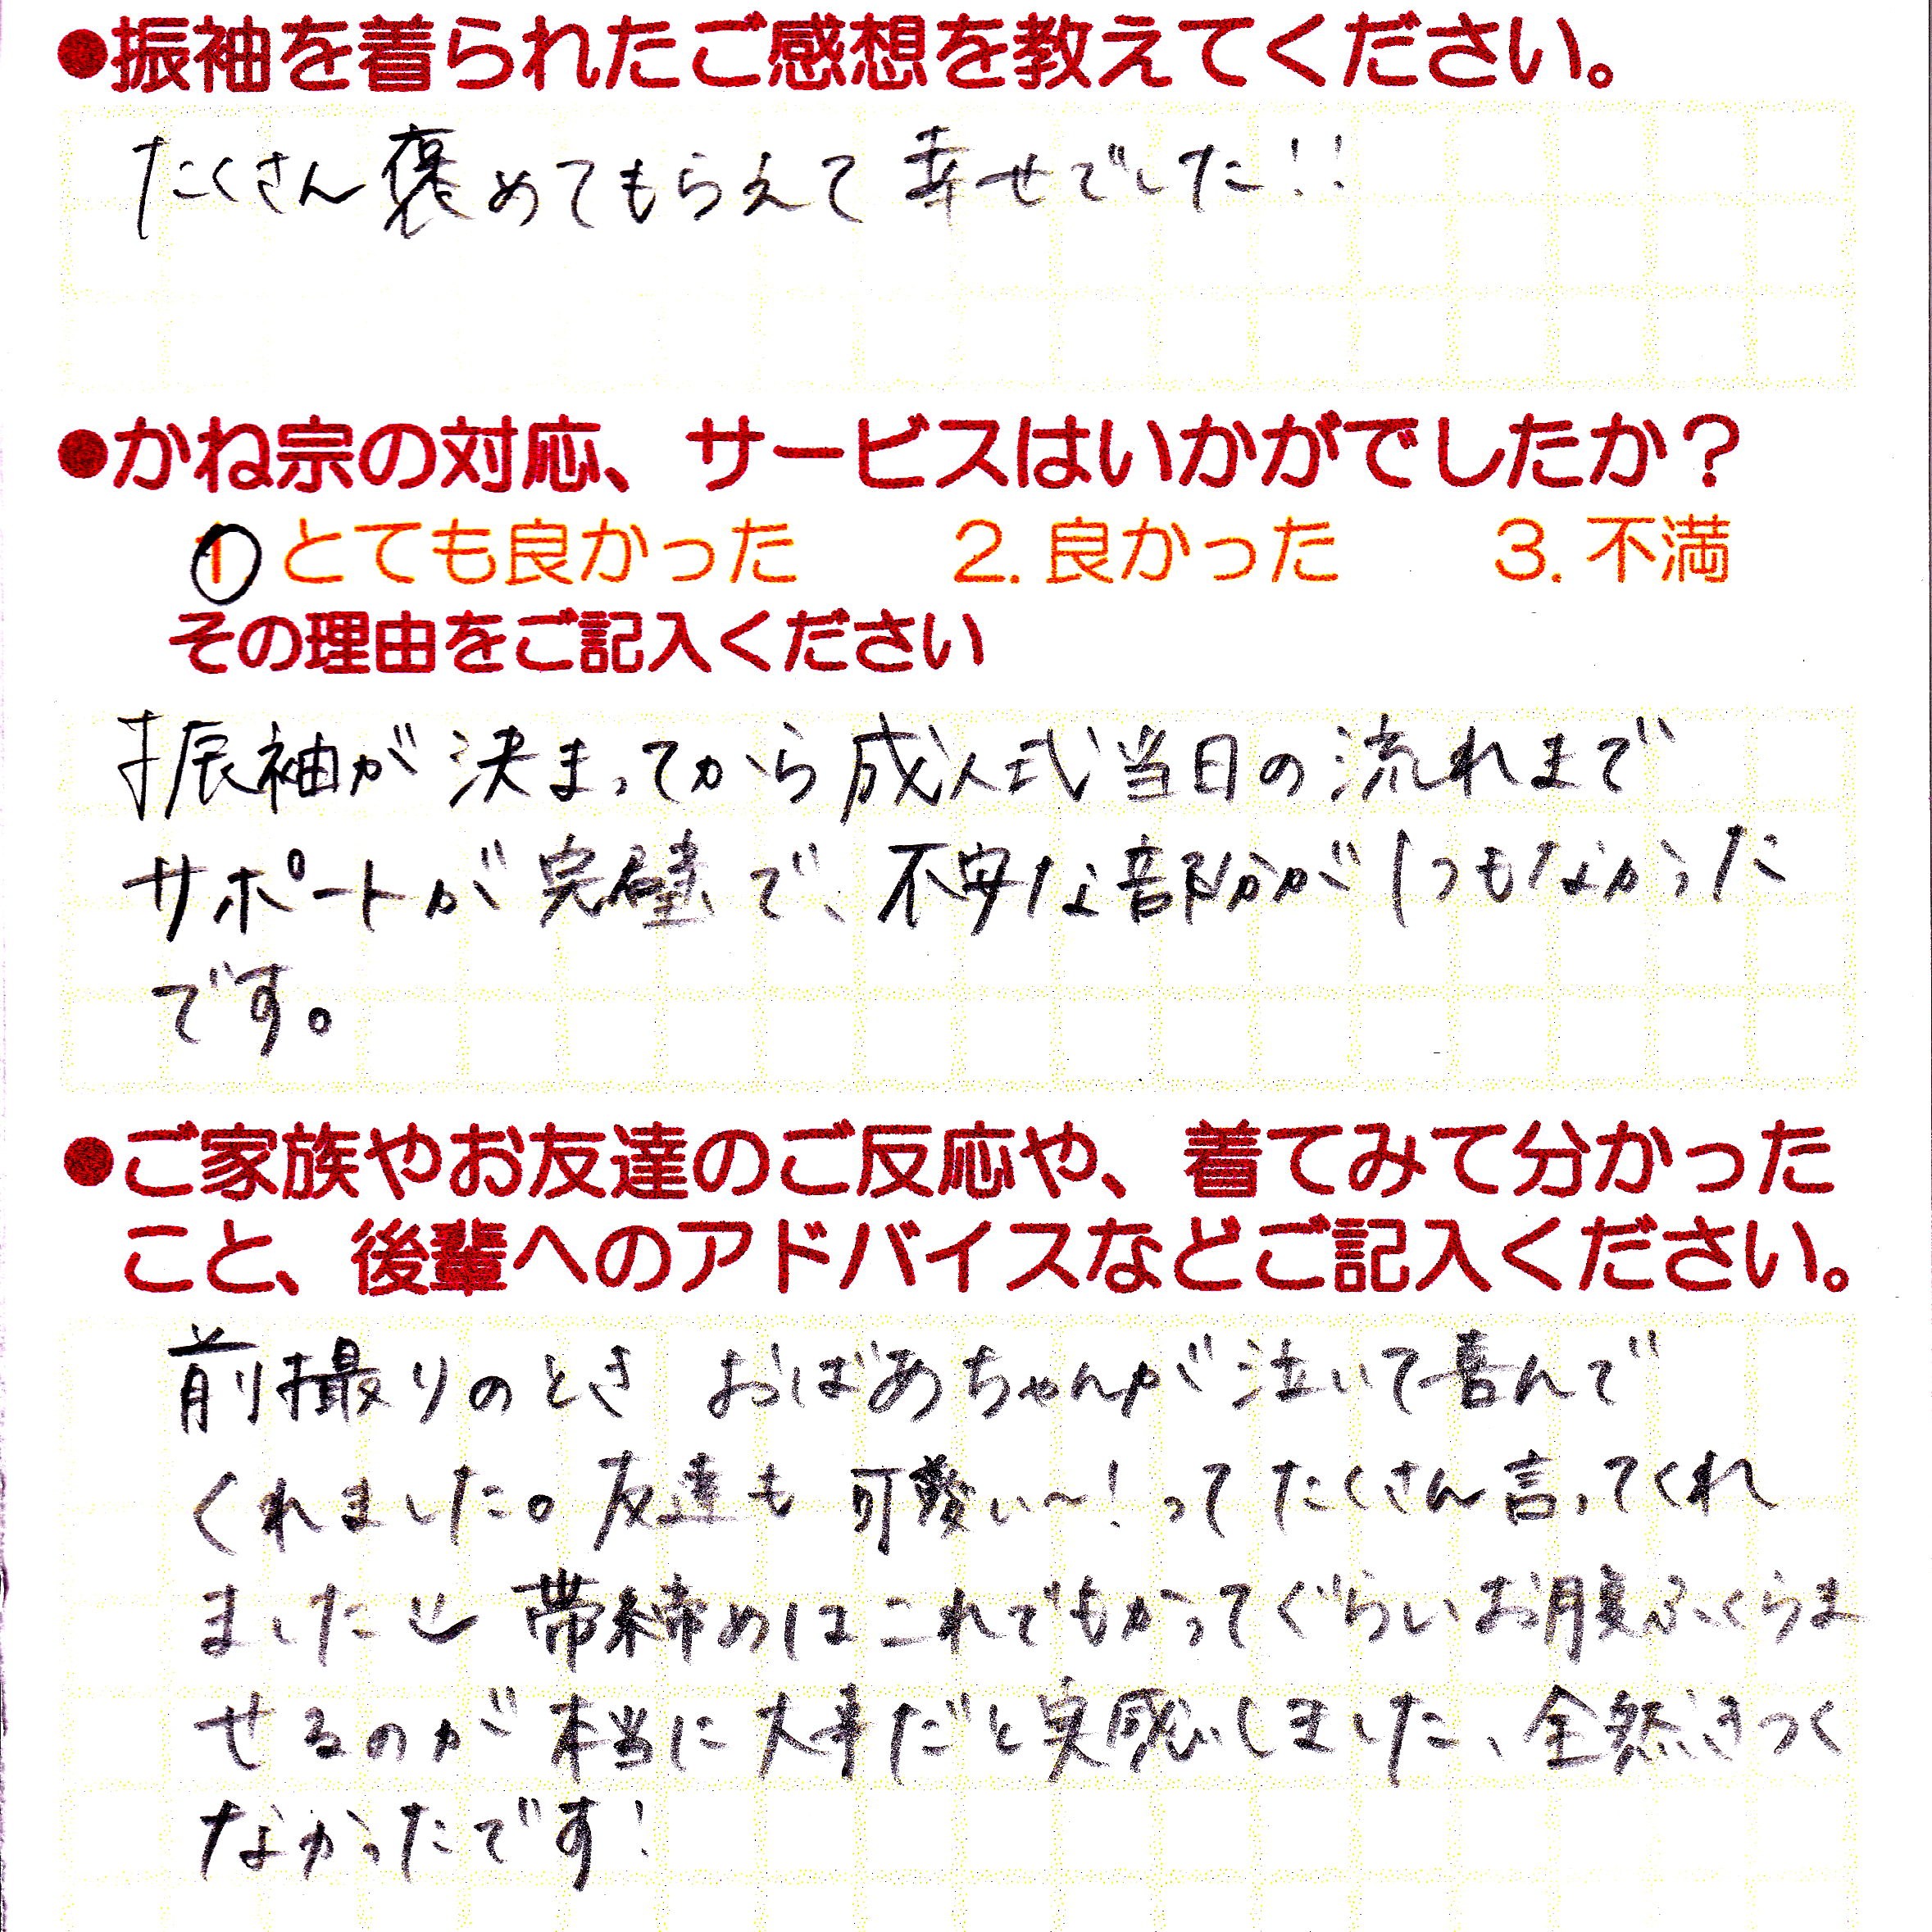 ●振袖を着られたご感想を教えてください。
たくさん褒めてもらえて幸せでした!!
●かね宗の対応、サービスはいかがでしたか？
1 とても良かった 2. 良かった 3. 不満
その理由をご記入ください
振袖が決まってから成人式当日の流れまで
サポートが完璧で、不安な部分が1つもなかった
です。
●ご家族やお友達のご反応や、着てみて分かった
こと、後輩へのアドバイスなどご記入ください。
前撮りのとき おばあちゃんが泣いて喜んで
くれました。友達も可愛い〜!ってたくさん言ってくれ
ました 帯締めはこれでもかってぐらいお腹ふくらま
せるのが本当に大事だと実感しました、全然きつく
なかったです!